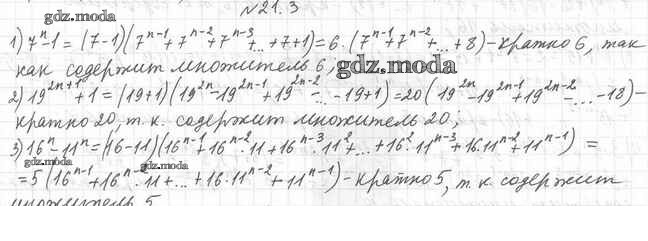 №21.3
gdz.moda
1) 7ⁿ-1 = (7-1)(7ⁿ⁻¹+7ⁿ⁻²+7ⁿ⁻³+...+7+1)=6·(7ⁿ⁻¹+7ⁿ⁻²+...+8)-кратно 6, так
как содержит множитель 6; gdz.moda
2) 19²ⁿ⁺¹+1=(19+1)(19²ⁿ-19²ⁿ⁻¹+19²ⁿ⁻²-...-19+1)=20(19²ⁿ-19²ⁿ⁻¹+19²ⁿ⁻²-...-18)-
кратно 20, т. к. содержит множитель 20;
3) 16ⁿ-11ⁿ=(16-11)(16ⁿ⁻¹+16ⁿ⁻²·11+16ⁿ⁻³·11²+...+16²·11ⁿ⁻³+16·11ⁿ⁻²+11ⁿ⁻¹) =
gdz.moda gdz.moda
=5(16ⁿ⁻¹+16ⁿ⁻²·11+...+16·11ⁿ⁻²+11ⁿ⁻¹)-кратно 5, т. к. содержит
множитель 5